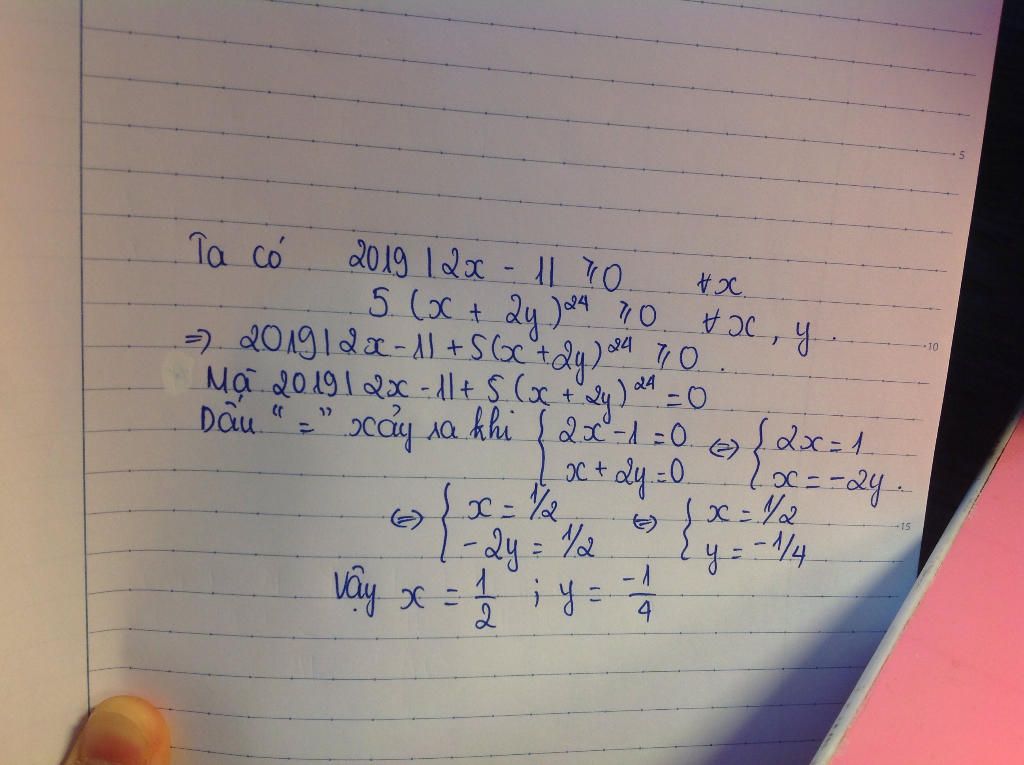 Ta có 2019|2x - 1| ⩾0 ∀x
5(x + 2y)²⁴ ⩾0 ∀x, y.
=> 2019|2x - 1| + 5(x + 2y)²⁴ ⩾0.
Mà 2019|2x - 1| + 5(x + 2y)²⁴ = 0
Dấu "=" xảy ra khi { 2x - 1 = 0 <=> { 2x = 1
x + 2y = 0 x = -2y.
<=> { x = 1/2 <=> { x = 1/2
-2y = 1/2 y = -1/4
Vậy x = 1/2 ; y = -1/4
5
10
15